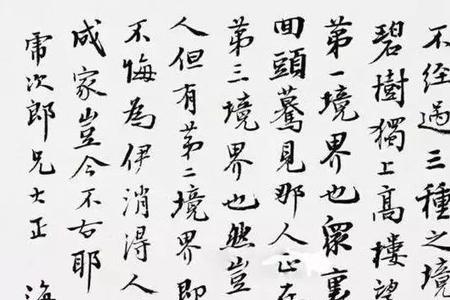 不经過三種之境
碧樹獨上高樓望
第一境界也眾裏
回頭驀見那人正在
第三境界也然豈
人但有第二境界即
不悔為伊消得人
成家豈今不古耶
乕次郎兄大正
海